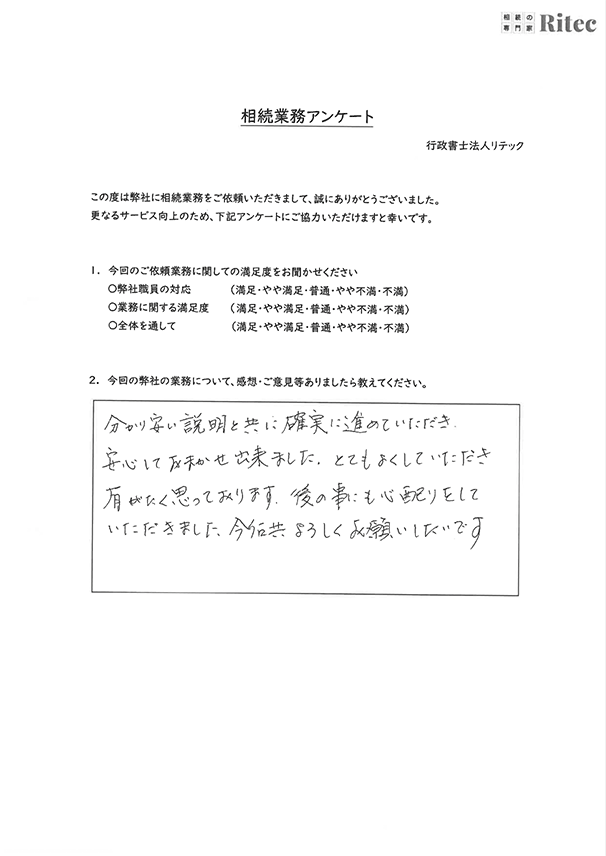 相続の専門家 Ritec
相続業務アンケート
行政書士法人リテック
この度は弊社に相続業務をご依頼いただきまして、誠にありがとうございました。
更なるサービス向上のため、下記アンケートにご協力いただけますと幸いです。
1. 今回のご依頼業務に関しての満足度をお聞かせください
○弊社職員の対応 (満足・やや満足・普通・やや不満・不満)
○業務に関する満足度 (満足・やや満足・普通・やや不満・不満)
○全体を通して (満足・やや満足・普通・やや不満・不満)
2. 今回の弊社の業務について、感想・ご意見等ありましたら教えてください。
分かり安い説明と共に確実に進めていただき、
安心しておまかせ出来ました。とてもよくしていただき
有がたく思っております。後の事にも心配りをして
いただきました、今后共よろしくお願いしたいです